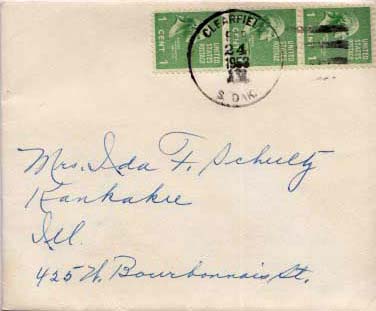 1 CENT
UNITED STATES POSTAGE
UNITED STATES POSTAGE
1
UNITED STATES POSTAGE
1 CENT
CLEARFIELD
24
1953
S. DAK.
Mrs. Ida F. Schultz
Kankakee
Ill.
425 W. Bourbonnais St.